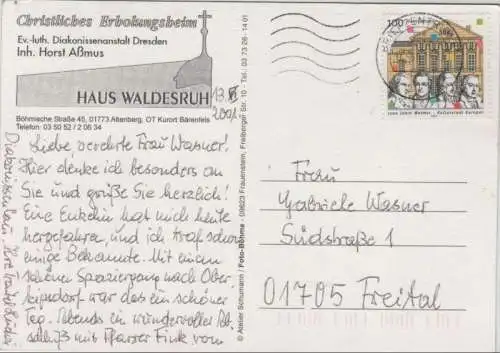 Christliches Erholungsheim
Ev.-luth. Diakonissenanstalt Dresden
Inh. Horst Aßmus
HAUS WALDESRUH
Böhmische Straße 45, 01773 Altenberg, OT Kurort Bärenfels
Telefon: 03 50 52 / 2 06 34
2001
Liebe, verehrte Frau Wasner!
Hier denke ich besonders an
Sie und grüße Sie herzlich!
Eine Enkelin hat mich heute
hergefahren, und ich traf schon
einige Bekannte. Mit einem
schönen Spaziergang nach Ober
kipsdorf war das ein schöner
Tag. Abends ein wundervoller Ab-
schluß mit Pfarrer Fink vom
Diakonissenhaus. Ihre
© Atelier Schumann / Foto-Böhme - 09623 Frauenstein, Freiberger Str. 10 - Tel. 03 73 26 - 14 01
100
Frau
Gabriele Wasner
Südstraße 1
01705 Freital